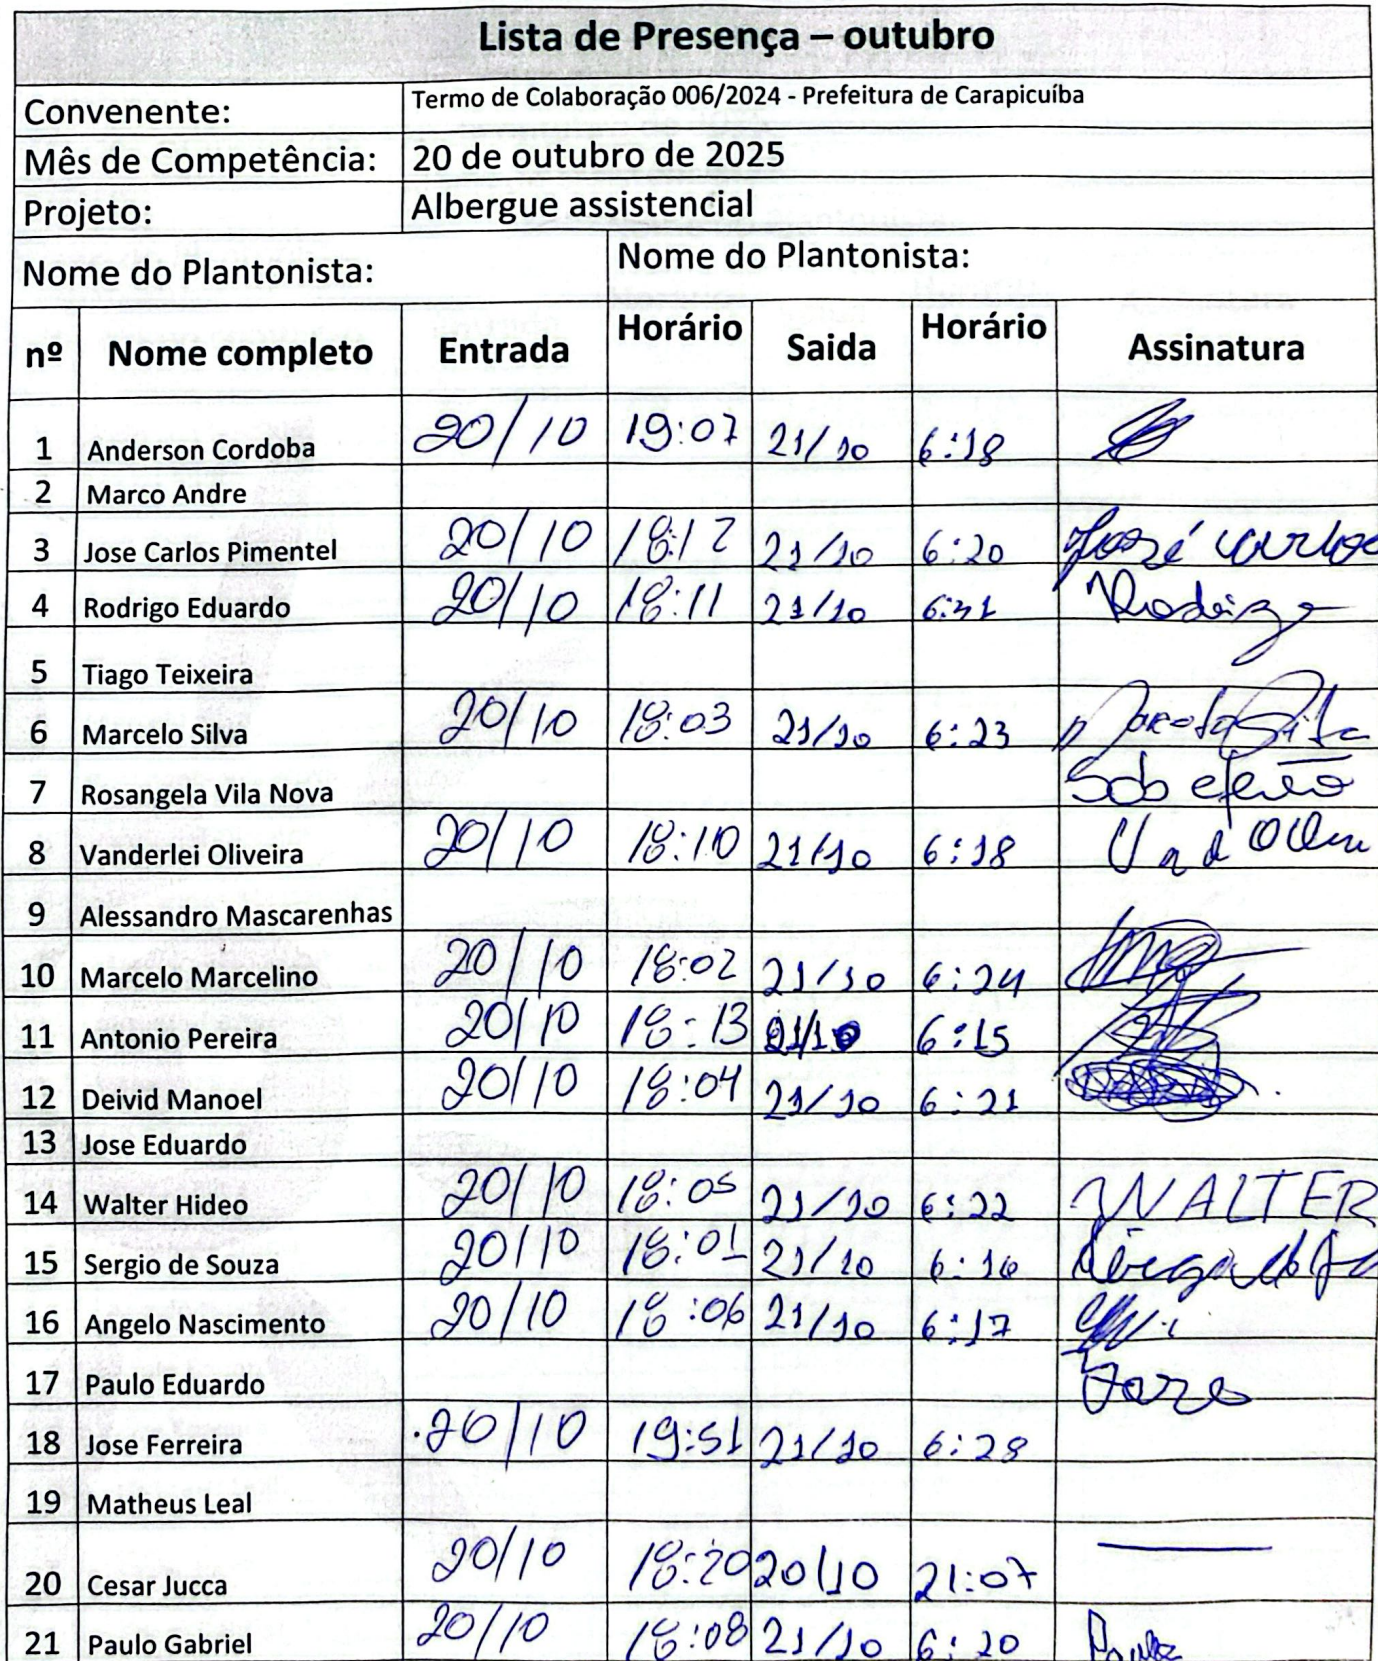 Lista de Presença – outubro
Convenente: Termo de Colaboração 006/2024 - Prefeitura de Carapicuíba
Mês de Competência: 20 de outubro de 2025
Projeto: Albergue assistencial
Nome do Plantonista: Nome do Plantonista:
nº Nome completo Entrada Horário Saida Horário Assinatura
1 Anderson Cordoba 20/10 19:07 21/10 6:18
2 Marco Andre
3 Jose Carlos Pimentel 20/10 18:12 21/10 6:20 José Carlos
4 Rodrigo Eduardo 20/10 18:11 21/10 Rodrigo
5 Tiago Teixeira
6 Marcelo Silva 20/10 18:03 21/10 6:23 Silva
7 Rosangela Vila Nova Sob efeito
8 Vanderlei Oliveira 20/10 18:10 21/10 6:18
9 Alessandro Mascarenhas
10 Marcelo Marcelino 20/10 18:02 21/10 6:24
11 Antonio Pereira 20/10 18:13 21/10 6:15
12 Deivid Manoel 20/10 18:04 21/10 6:21
13 Jose Eduardo
14 Walter Hideo 20/10 18:05 21/10 6:22 WALTER
15 Sergio de Souza 20/10 18:01 21/10 6:16
16 Angelo Nascimento 20/10 18:06 21/10 6:17
17 Paulo Eduardo
18 Jose Ferreira 20/10 19:51 21/10 6:28
19 Matheus Leal
20 Cesar Jucca 20/10 18:20 20/10 21:07
21 Paulo Gabriel 20/10 18:08 21/10 6:20